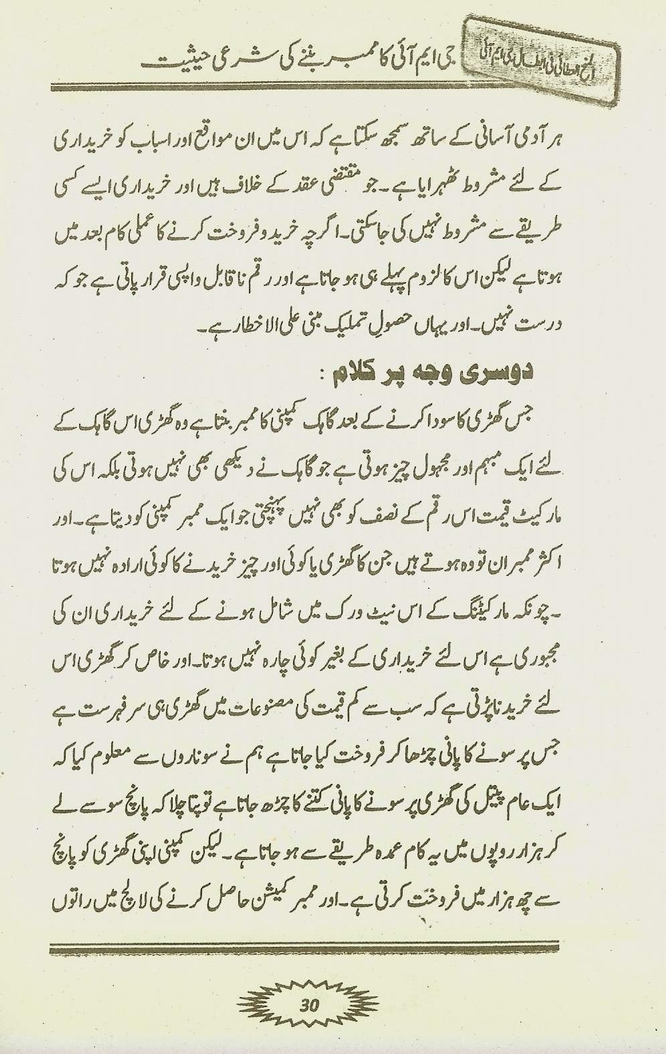 جی ایم آئی کا ممبر بننے کی شرعی حیثیت
ہر آدمی آسانی کے ساتھ سمجھ سکتا ہے کہ اس میں ان مواقع اور اسباب کو خریداری
کے لئے مشروط ٹھہرایا ہے۔ جو مقتضی عقد کے خلاف ہیں اور خریداری ایسے کسی
طریقے سے مشروط نہیں کی جاسکتی۔ اگرچہ خرید و فروخت کرنے کا عملی کام بعد میں
ہوتا ہے لیکن اس کا لزوم پہلے ہی ہو جاتا ہے اور رقم ناقابل واپسی قرار پاتی ہے جو کہ
درست نہیں۔ اور یہاں حصولِ تملیک مبنی علی الاخطار ہے۔
دوسری وجہ پر کلام :
جس گھڑی کا سودا کرنے کے بعد گاہک کمپنی کا ممبر بنتا ہے وہ گھڑی اس گاہک کے
لئے ایک مبہم اور مجہول چیز ہوتی ہے جو گاہک نے دیکھی بھی نہیں ہوتی بلکہ اس کی
مارکیٹ قیمت اس رقم کے نصف کو بھی نہیں پہنچتی جو ایک ممبر کمپنی کو دیتا ہے۔ اور
اکثر ممبران تو وہ ہوتے ہیں جن کا گھڑی یا کوئی اور چیز خریدنے کا کوئی ارادہ نہیں ہوتا
۔ چونکہ مارکیٹنگ کے اس نیٹ ورک میں شامل ہونے کے لئے خریداری ان کی
مجبوری ہے اس لئے خریداری کے بغیر کوئی چارہ نہیں ہوتا۔ اور خاص کر گھڑی اس
لئے خریدنا پڑتی ہے کہ سب سے کم قیمت کی مصنوعات میں گھڑی ہی سر فہرست ہے
جس پر سونے کا پانی چڑھا کر فروخت کیا جاتا ہے ہم نے سوناروں سے معلوم کیا کہ
ایک عام پیتل کی گھڑی پر سونے کا پانی کتنے کا چڑھ جاتا ہے تو پتا چلا کہ پانچ سو سے لے
کر ہزار روپوں میں یہ کام عمدہ طریقے سے ہو جاتا ہے۔ لیکن کمپنی اپنی گھڑی کو پانچ
سے چھ ہزار میں فروخت کرتی ہے۔ اور ممبر کمیشن حاصل کرنے کی لالچ میں راتوں
30